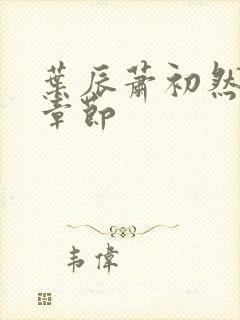 葉辰蕭初然
章節
韦偉